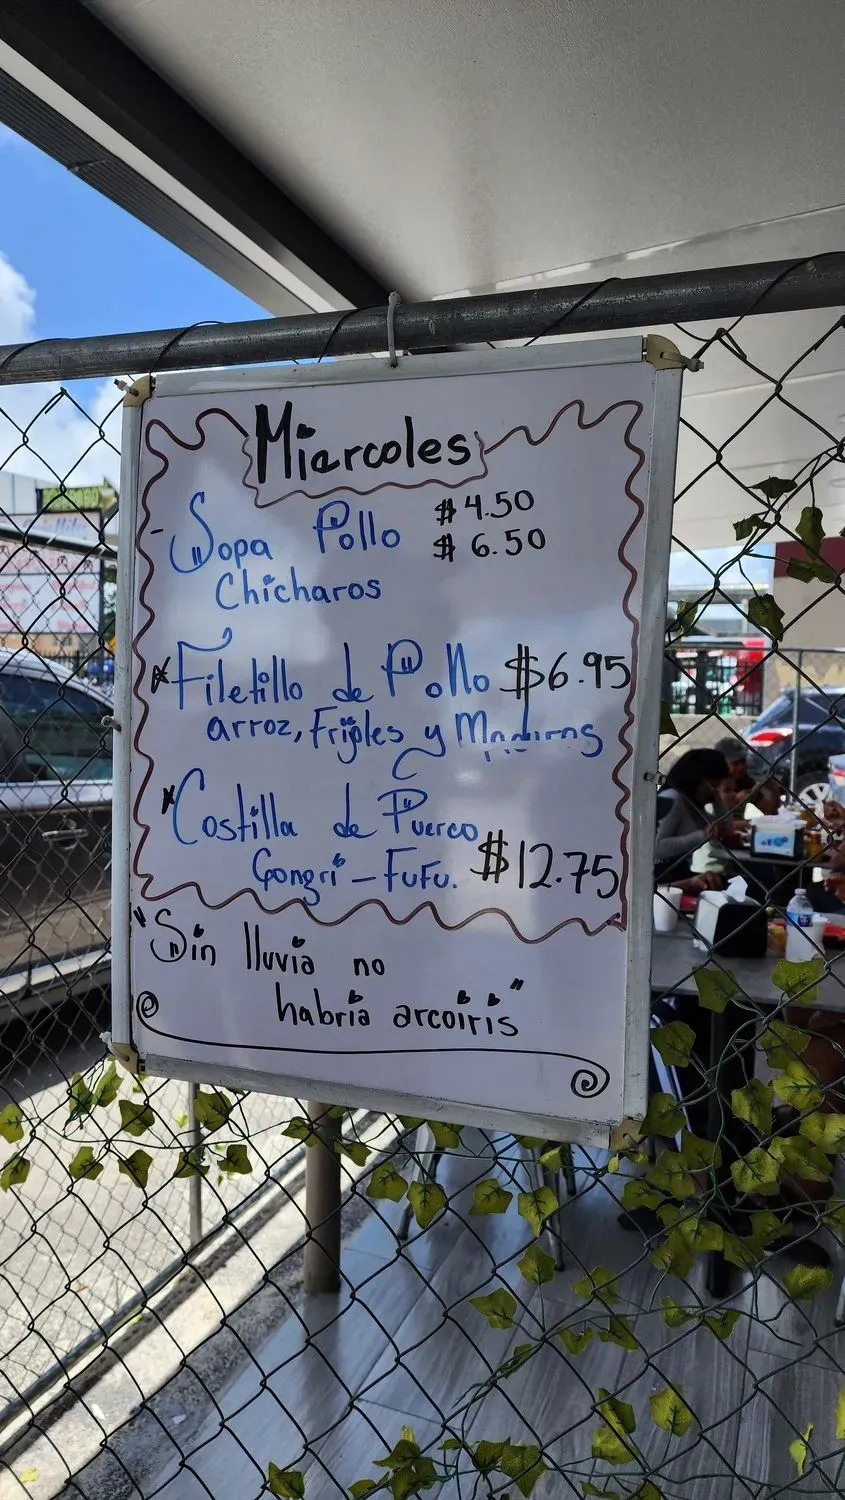 Miercoles
- Sopa Pollo $4.50
$6.50
Chicharos
* Filetillo de Pollo $6.95
arroz, Frijoles y Maduros
* Costilla de Puerco
Congri - FuFu. $12.75
"Sin lluvia no
habria arcoiris"